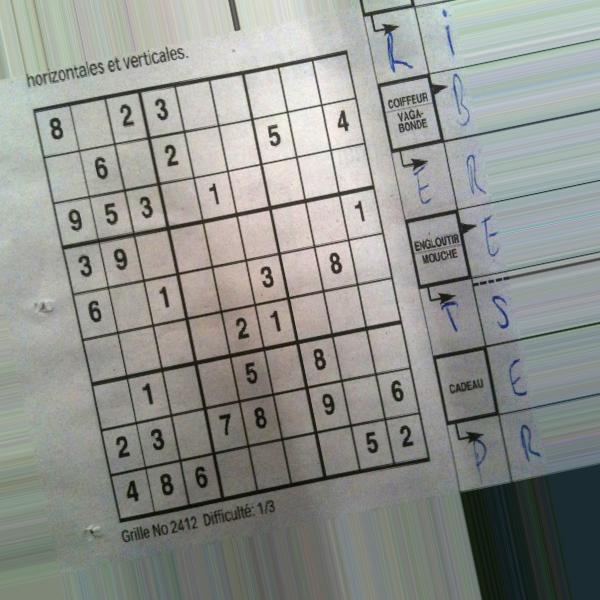 horizontales et verticales.
8 2 3
6 2 5 4
9 5 3 1
3 9 1
6 1 3 8
2 1
1 5 8
2 3 7 8 9 6
4 8 6 5 2
Grille No 2412 Difficulté: 1/3
R i
COIFFEUR
VAGA-
BONDE
B
E R
ENGLOUTIR
MOUCHE
E
T S
CADEAU
E
P R